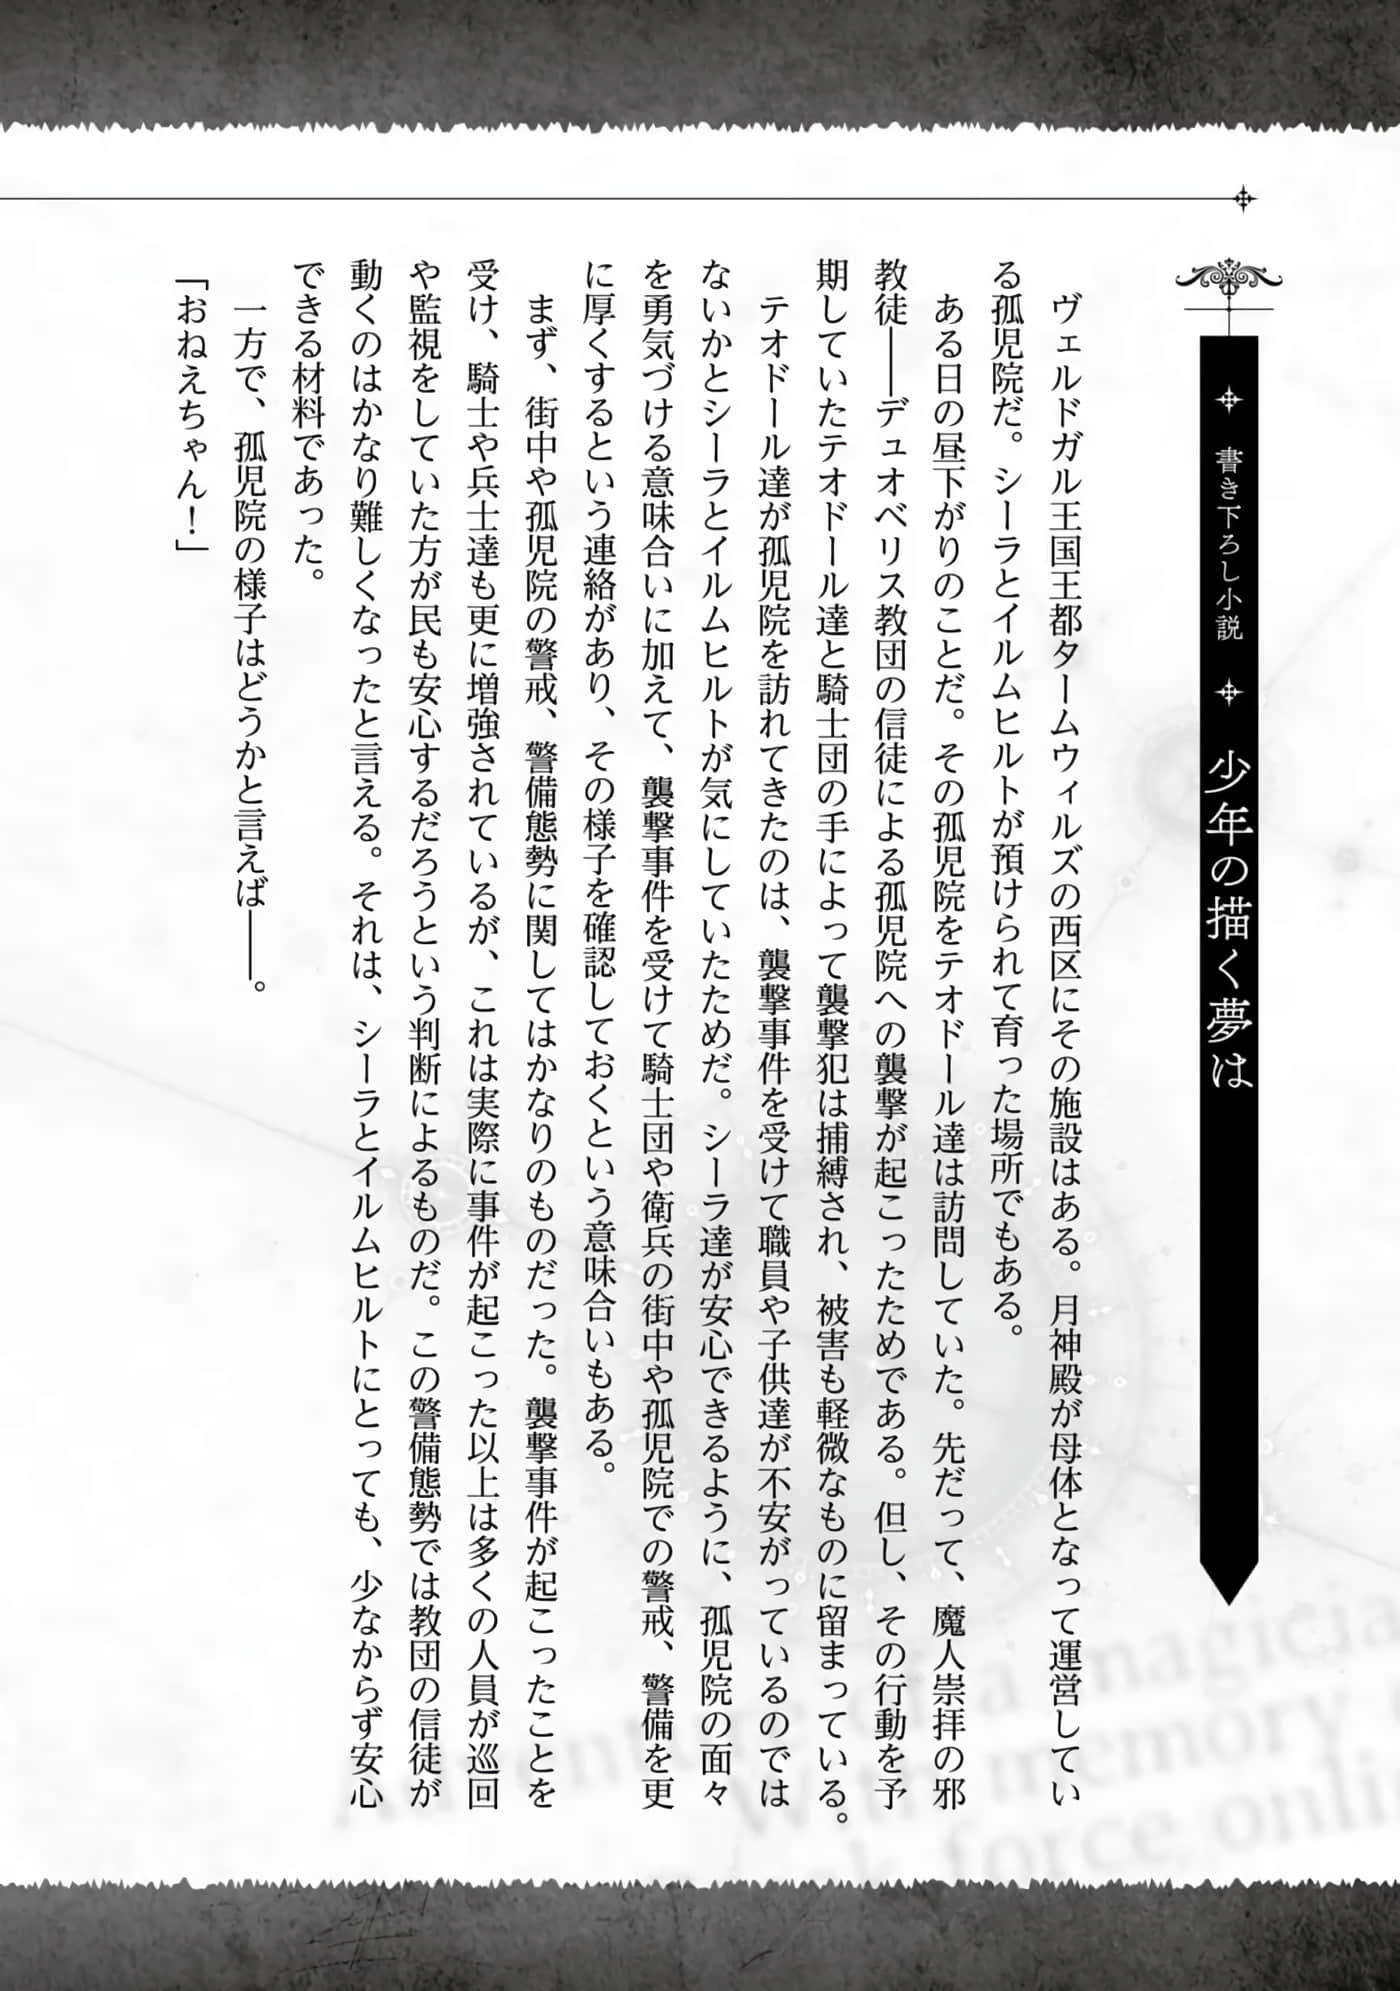 書き下ろし小説 少年の描く夢は
ヴェルドガル王国王都タームウィルズの西区にその施設はある。月神殿が母体となって運営してい
る孤児院だ。シーラとイルムヒルトが預けられて育った場所でもある。
ある日の昼下がりのことだ。その孤児院をテオドール達は訪問していた。先だって、魔人崇拝の邪
教徒――デュオベリス教団の信徒による孤児院への襲撃が起こったためである。但し、その行動を予
期していたテオドール達と騎士団の手によって襲撃犯は捕縛され、被害も軽微なものに留まっている。
テオドール達が孤児院を訪れてきたのは、襲撃事件を受けて職員や子供達が不安がっているのでは
ないかとシーラとイルムヒルトが気にしていたためだ。シーラ達が安心できるように、孤児院の面々
を勇気づける意味合いに加えて、襲撃事件を受けて騎士団や衛兵の街中や孤児院での警戒、警備を更
に厚くするという連絡があり、その様子を確認しておくという意味合いもある。
まず、街中や孤児院の警戒、警備態勢に関してはかなりのものだった。襲撃事件が起こったことを
受け、騎士や兵士達も更に増強されているが、これは実際に事件が起こった以上は多くの人員が巡回
や監視をしていた方が民も安心するだろうという判断によるものだ。この警備態勢では教団の信徒が
動くのはかなり難しくなったと言える。それは、シーラとイルムヒルトにとっても、少なからず安心
できる材料であった。
一方で、孤児院の様子はどうかと言えば――。
「おねえちゃん！」
magicia
With memory
force onli